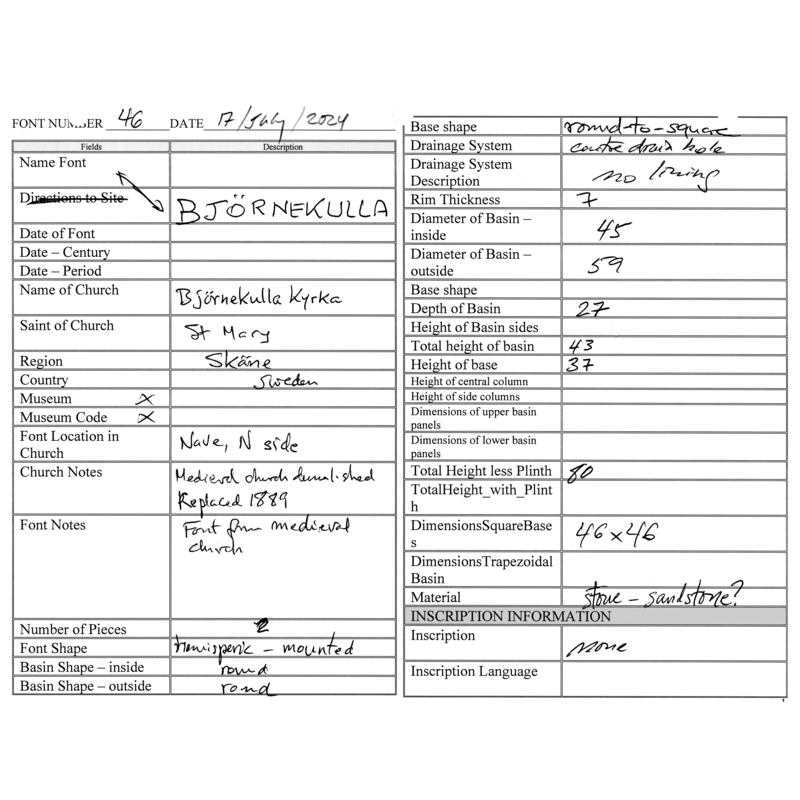 FONT NUMBER 46 DATE 17/July/2024
Fields Description
Name Font
Directions to Site BJÖRNEKULLA
Date of Font
Date – Century
Date – Period
Name of Church Björnekulla Kyrka
Saint of Church St Mary
Region Skäne
Country Sweden
Museum X
Museum Code X
Font Location in
Church Nave, N side
Church Notes Medieval church demolished
Replaced 1889
Font Notes Font from medieval
church
Number of Pieces 2
Font Shape hemisperic – mounted
Basin Shape – inside round
Basin Shape – outside rond
Base shape round-to-square
Drainage System centre drain hole
Drainage System
Description no lining
Rim Thickness 7
Diameter of Basin –
inside 45
Diameter of Basin –
outside 59
Base shape
Depth of Basin 27
Height of Basin sides
Total height of basin 43
Height of base 37
Height of central column
Height of side columns
Dimensions of upper basin
panels
Dimensions of lower basin
panels
Total Height less Plinth 80
TotalHeight_with_Plint
h
DimensionsSquareBase
s 46x46
DimensionsTrapezoidal
Basin
Material stone – sandstone?
INSCRIPTION INFORMATION
Inscription none
Inscription Language